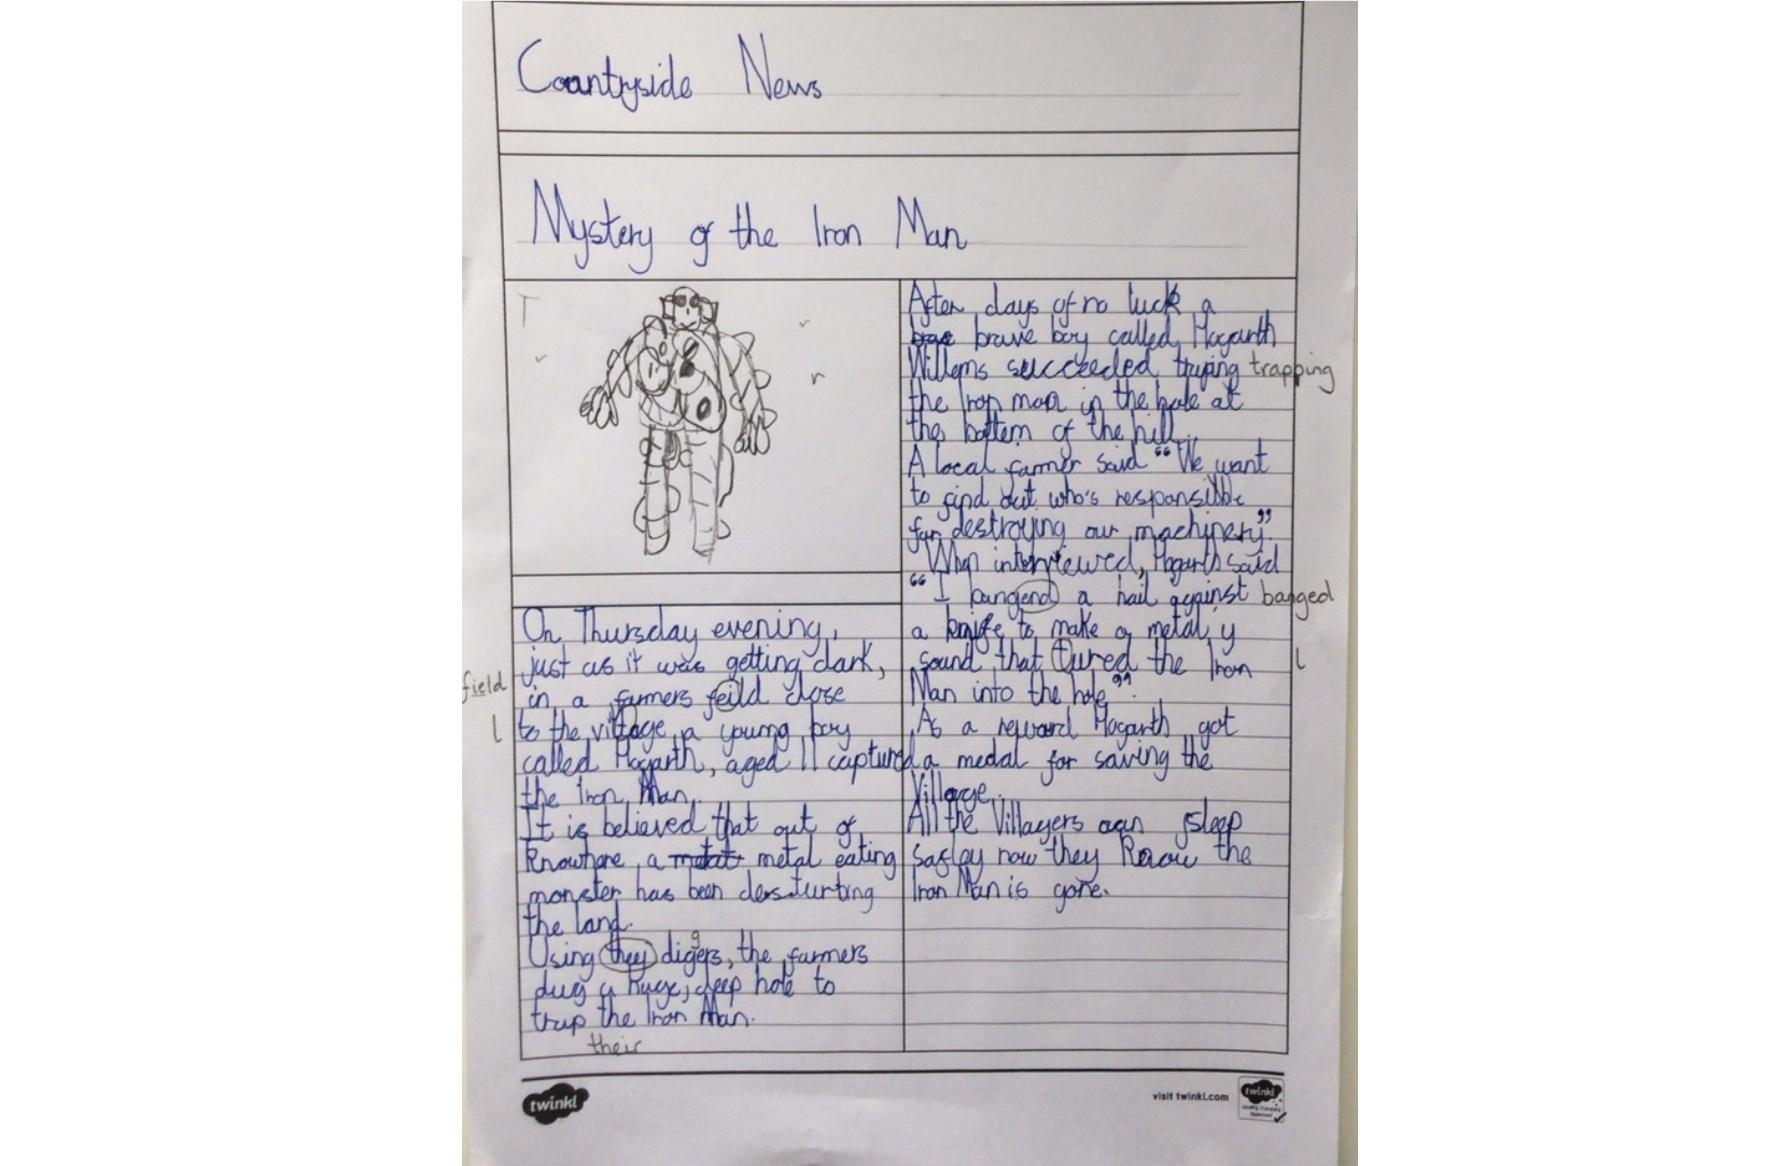 Countryside News
Mystery of the Iron Man
On Thursday evening,
just as it was getting dark,
field
in a farmers feild close
l
to the village a young boy
called Hogarth, aged 11 captured
the Iron Man.
It is believed that out of
Knowhere a metal eating
monster has been desturbing
the land.
Using they digers, the farmers
g
dug a huge, deep hole to
trap the Iron Man.
their
After days of no luck a
brave boy called Hogarth
Willems succeeded trying trapping
the Iron man in the hole at
the bottem of the hill.
A local farmer said "We want
to find out who's responsible
for destroying our machinery".
When interviewed, Hogarth said
"I bangend a nail against banged
a knife to make a metal y
sound that tured the Iron l
Man into the hole".
As a reward Hogarth got
a medal for saving the
Village.
All the Villagers can sleep
safley now they Know the
Iron Man is gone.
twinkl
visit twinkl.com
twinkl
Quality Standard
Approved